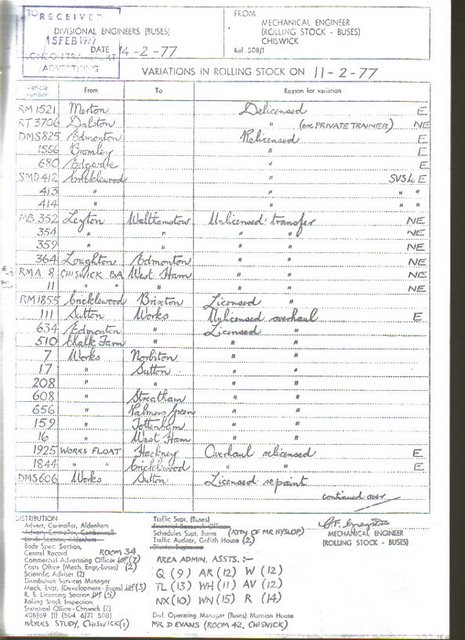 TO RECEIVED
15 FEB 1977
LONDON TRANSPORT
ADVERTISING
DIVISIONAL ENGINEERS (BUSES)
DATE 14-2-77
FROM
MECHANICAL ENGINEER
(ROLLING STOCK - BUSES)
CHISWICK
Ref. 508/1
VARIATIONS IN ROLLING STOCK ON 11-2-77
Vehicle number From To Reason for variation
RM 1521 Merton Delicensed E
RT 3706 Dalston " (OK PRIVATE TRAINER) NE
DMS 825 Edmonton Relicensed E
1556 Bromley " E
680 Edgware " E
SMD 412 Cricklewood " E
413 " " " "
414 " " " "
MB 352 Leyton Walthamstow Unlicensed transfer NE
354 " " " " NE
359 " " " " NE
364 Loughton Edmonton " " NE
RMA 8 CHISWICK BA West Ham " " NE
11 " " " " " NE
RM 1855 Cricklewood Brixton Licensed "
111 Sutton Works Unlicensed overhaul E
634 Edmonton " Licensed "
510 Chalk Farm " " "
7 Works Norbiton " "
17 " Sutton " "
208 " " " "
608 " Streatham " "
656 " Palmers Green " "
159 " Tottenham " "
16 " West Ham " "
1925 WORKS FLOAT Hackney Overhaul relicensed E
1844 " Cricklewood " " E
DMS 606 Works Sutton Licensed repaint
continued over
DISTRIBUTION
Advert. Controller, Aldenham
Body Spec. Section,
Central Record ROOM 34
Commercial Advertising Officer
Costs Office (Mech. Engr/Buses) (2)
Scientific Adviser (2)
Distribution Services Manager
Mech. Engr. (Development - Buses) (3)
R. S. Licensing Section (5)
Rolling Stock Inspection
Statistical Office - Chiswick (7)
408/69 (1) 504 6/71 508)
WORKS STUDY, CHISWICK (1)
Traffic Supt. (Buses)
Schedules Supt. Buses (ATTN OF MR HYSLOP)
Traffic Auditor, Griffith House (2)
AREA ADMIN. ASSTS. -
Q (9) AR (12) W (12)
TL (13) WH (11) AV (12)
NX (10) WN (15) R (14)
Dvl. Operating Manager (Buses) Mansion House
MR D EVANS (ROOM 42, CHISWICK)
MECHANICAL ENGINEER
(ROLLING STOCK - BUSES)